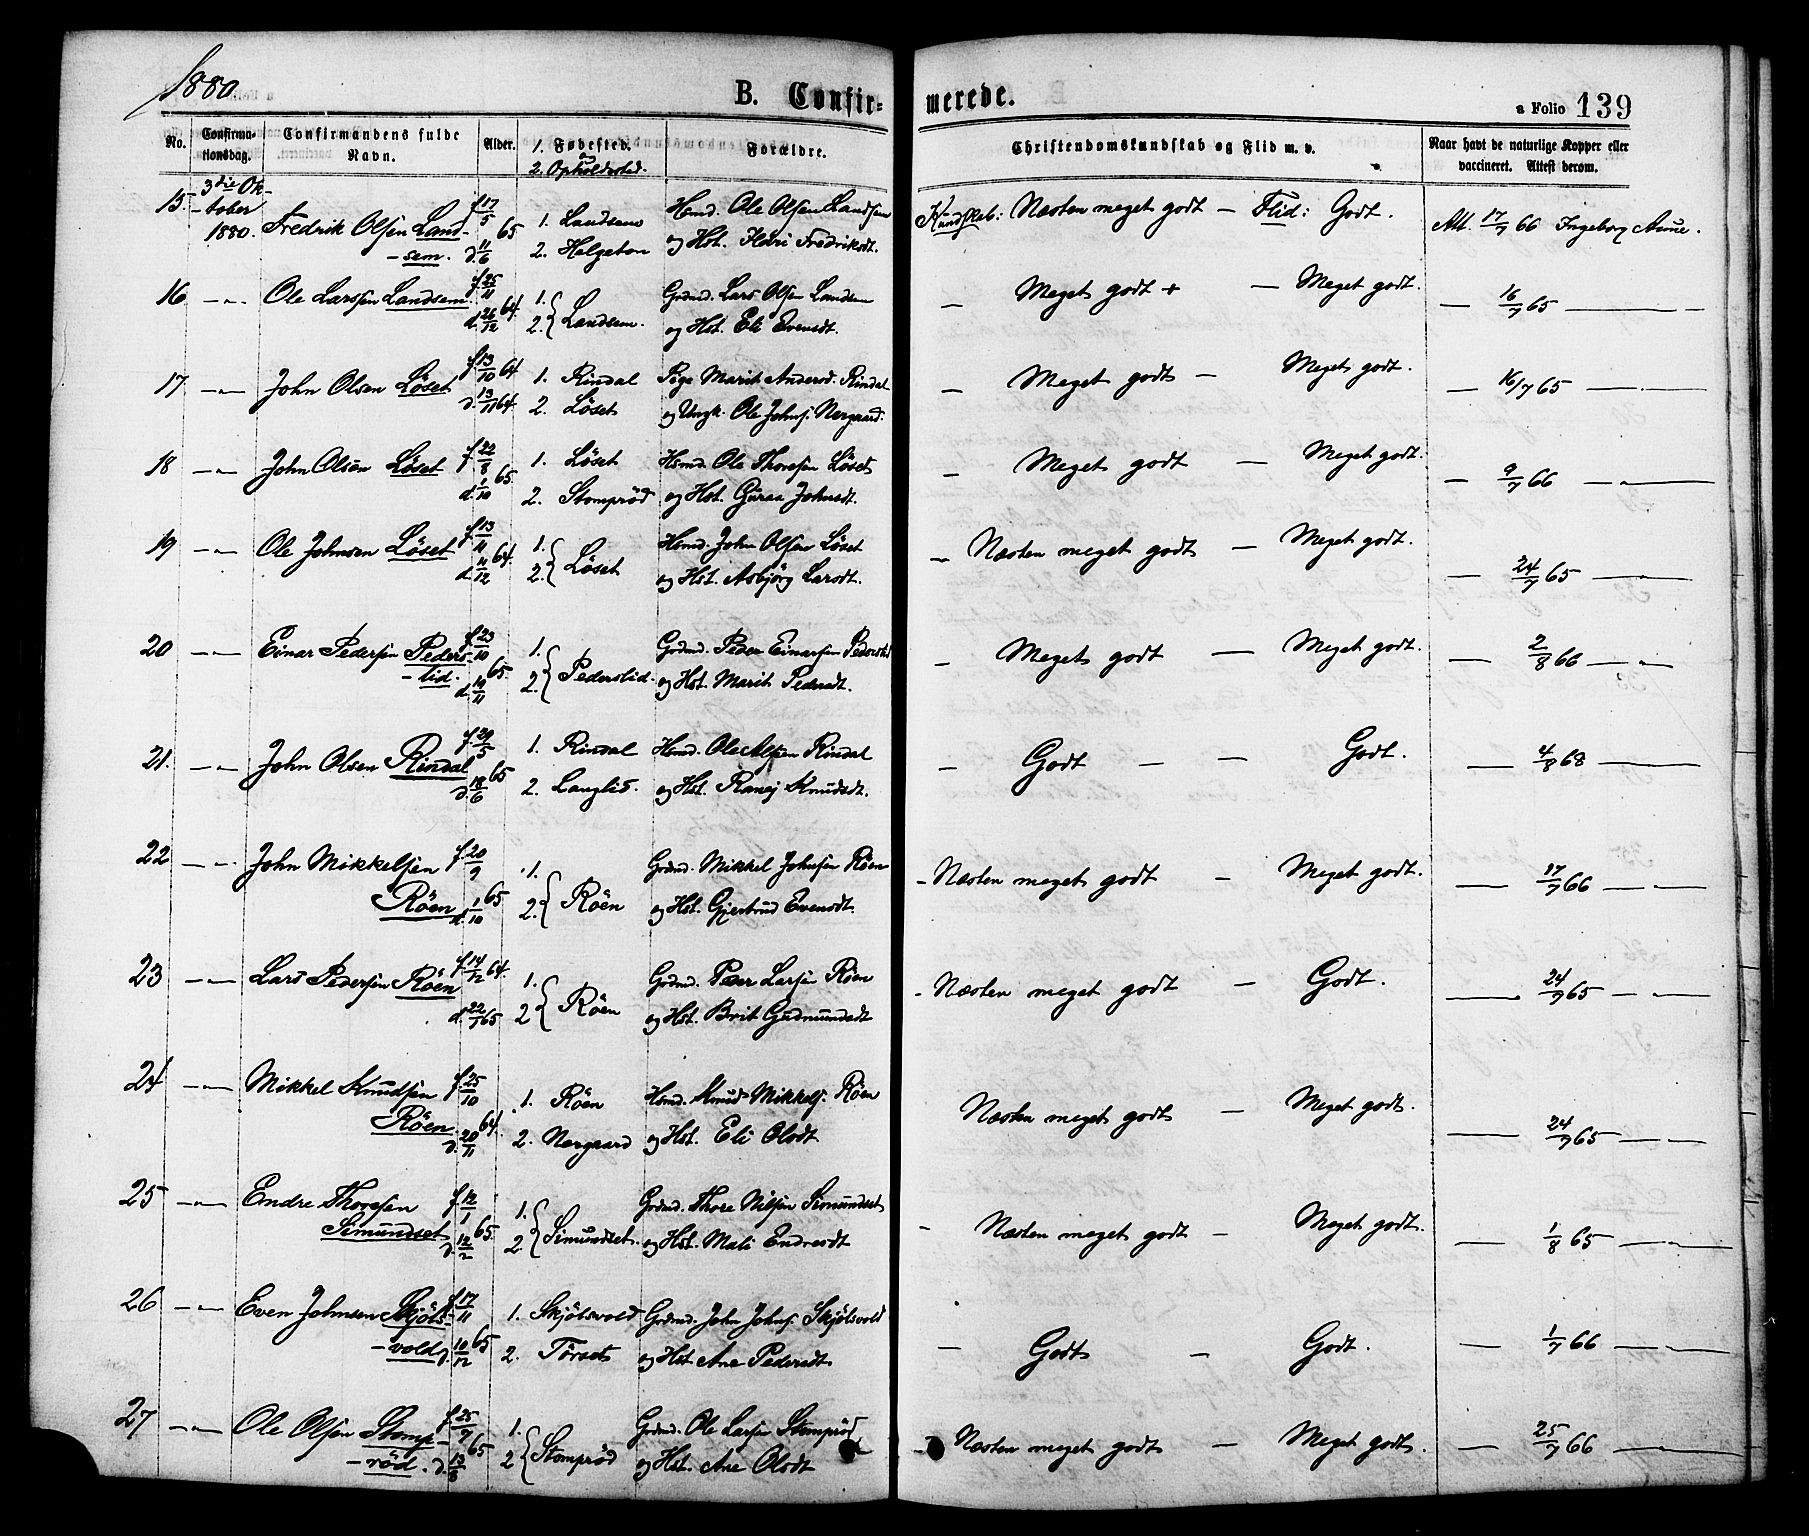 1880
B. Confir-
merede.
a Folio 139
No.
Confirma-
tionsdag.
Confirmandens fulde
Navn.
Alder.
1. Fødested.
2. Opholdssted.
Forældre.
Christendomskundskab og Flid m. v.
Naar havt de naturlige Kopper eller
vaccineret. Attest derom.
15. 3die Ok-
tober
1880. Fredrik Olsen Land- f. 17/5 65 1. Landsem Hmd. Ole Olsen Landsem Kundskab: Næsten meget godt — Flid: Godt. Att. 17/7 66 Ingeborg Aune.
- sem. d. 11/6 2. Helgeton og Hst. Fredriksdt.
16 — " — Ole Larssen Landsem f. 25/11 64. 1. Grdmd. Lars Olsen Landsem — Meget godt + — Meget godt. — 16/7 65 —
d. 26/12 2. Landsem. og Hst. Eli Evensdt.
17 — " — John Olsen Löset f. 13/10 64 1. Rindal Pige Marit Andersd. Rindal — Meget godt — Meget godt. — 16/7 65 —
d. 13/11 64. 2. Löset og Ungk. Ole Johns. Nergaard.
18 — " — John Olsen Löset f. 22/8 65 1. Löset Hsmd. Ole Thoresen Löset — Meget godt — Meget godt. — 9/7 66 — " —
d. 1/10 2. Stomprød og Hst. Guraa Johnsdt.
19 — " — Ole Johnsen Löset f. 13/11 64. 1. Hsmd. John Olsen Löset — Næsten meget godt — Meget godt. — 24/7 65 — " —
d. 11/12 2. Löset og Hst. Asbjörg Larsdt.
20 — " — Einar Pedersen Peders- f. 23/10 65 1. Grdmd. Peder Einarsen Pederslid — Meget godt — Meget godt. — 2/8 66 — " —
- lid. d. 19/11 2. Pederslid. og Hst. Marit Pedersdt.
21. — " — John Olsen Rindal f. 29/5 65 1. Rindal Hsmd. Ole Rindal — Godt — Godt. — 4/8 68 —
d. 18/6 2. Langli. og Hst. Ranej Knudsdt.
22 — " — John Mikkelsen f. 20/9 65 1. Grdmd. Mikkel Johnsen Röen — Næsten meget godt — Meget godt. — 17/7 66 —
Röen d. 1/10 2. Röen og Hst. Gjertrud Evensdt.
23 — " — Lars Pedersen Röen f. 14/12 64. 1. Grdmd. Peder Larsen Röen — Næsten meget godt — Godt. — 24/7 65 — " —
d. 22/1 65 2 Röen og Hst. Brit Gudmundsdt
24 — " — Mikkel Knudsen f. 25/10 64. 1. Röen Hsmd. Knud Mikkels. Röen Næsten meget godt — Meget godt. — 24/7 65 — " —
Röen. d. 20/11 2. Nergaard og Hst. Eli Olsdt
25 — " — Endre Thoresen f. 12/1 65 1. Grdmd. Thore Nilsen Simundset — Næsten meget godt — Meget godt. — 1/8 65 — " —
Simundset d. 12/2 2 Simundset. og Hst. Mali Endresdt
26 — " — Even Johnsen Skjöls- f. 17/11 65 1. Skjölsvold Grdmd. John Johns. Skjölsvold — Godt — Godt. — 1/7 66 — " —
- vold d. 10/12 2. Törset og Hst Ane Pedersdt
27 — " — Ole Olsen Stomp- f. 25/7 65 1. Grdmd. Ole Larsen Stompröd — Næsten meget godt — Meget godt. — 25/7 66 — " —
- röd. d. 13/8 2 Stompröd og Hst. Ane Olsdt